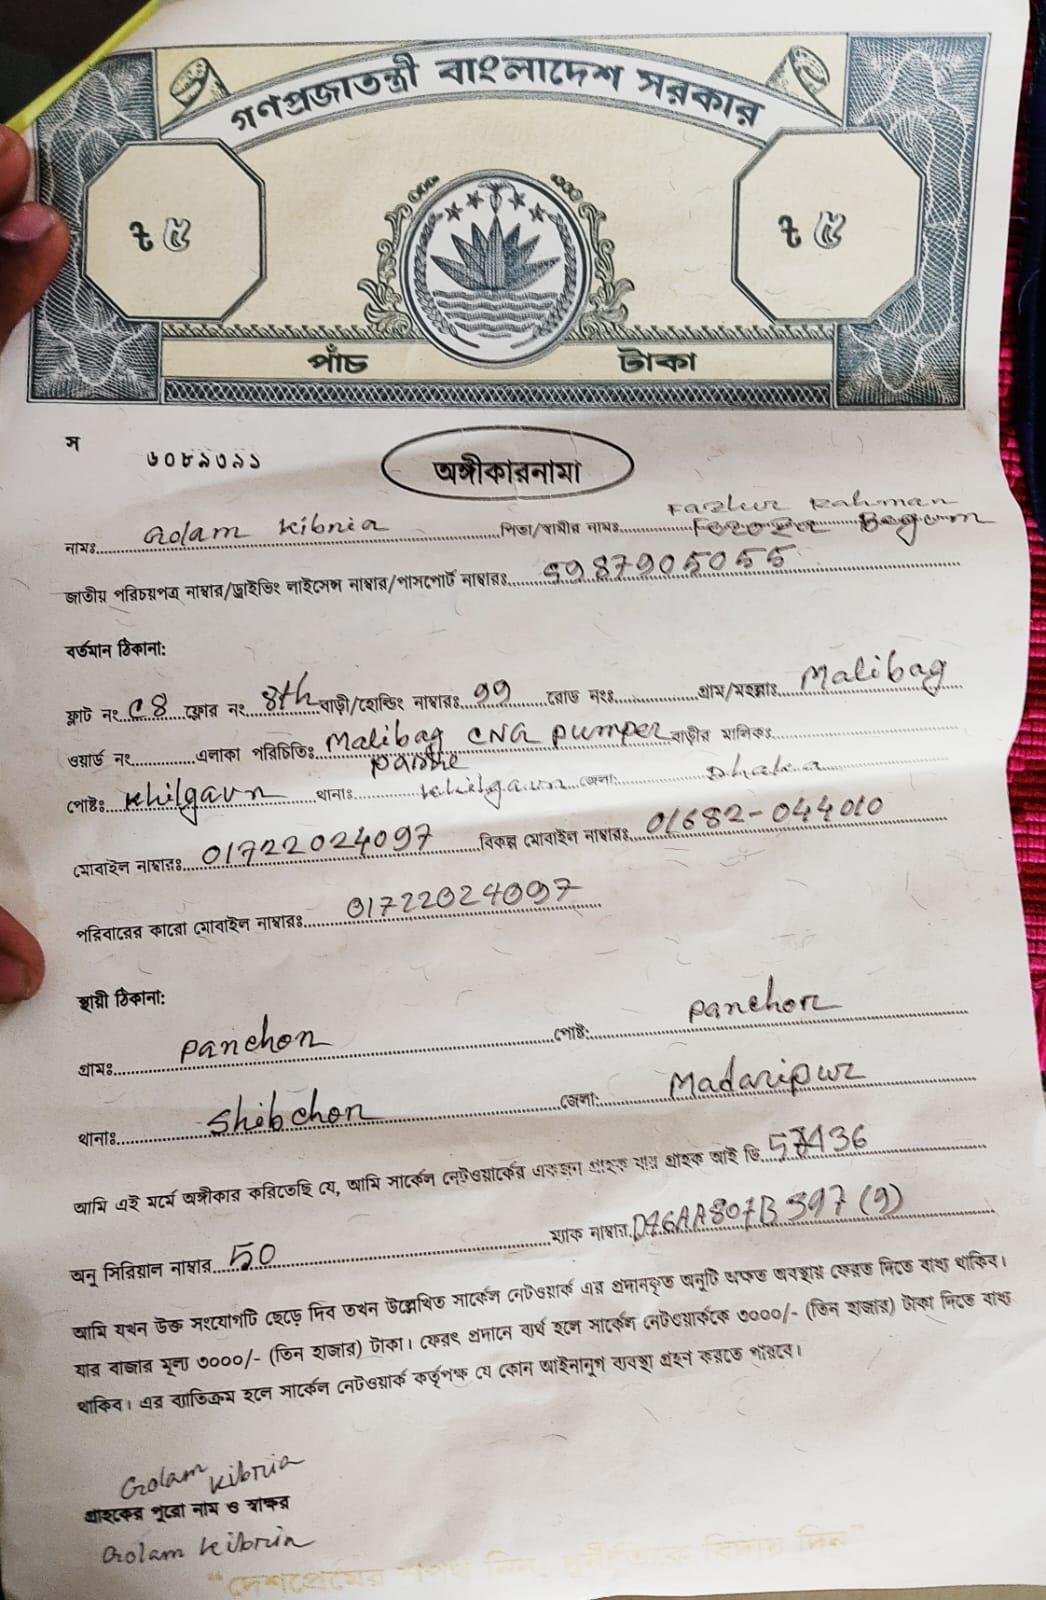 গণপ্রজাতন্ত্রী বাংলাদেশ সরকার
৳ ৫ ৳ ৫
পাঁচ টাকা
স ৬০৮৯৩৯১
অঙ্গীকারনামা
Fazlur Rahman
নামঃ Golam Kibria পিতা/স্বামীর নামঃ Feroza Begum
জাতীয় পরিচয়পত্র নাম্বার/ড্রাইভিং লাইসেন্স নাম্বার/পাসপোর্ট নাম্বারঃ 5987905055
বর্তমান ঠিকানা:
ফ্লাট নং C8 ফ্লোর নং 8th বাড়ী/হোল্ডিং নাম্বারঃ 99 রোড নংঃ গ্রাম/মহল্লাঃ Malibag
ওয়ার্ড নং এলাকা পরিচিতিঃ Malibag CNG Pumper বাড়ীর মালিকঃ
পোষ্টঃ Khilgaun থানাঃ Khilgaun জেলা: Dhaka
মোবাইল নাম্বারঃ 01722024097 বিকল্প মোবাইল নাম্বারঃ 01682-044010
পরিবারের কারো মোবাইল নাম্বারঃ 01722024097
স্থায়ী ঠিকানা:
গ্রামঃ Panchor পোষ্ট: Panchor
থানাঃ Shibchor জেলা: Madaripur
আমি এই মর্মে অঙ্গীকার করিতেছি যে, আমি সার্কেল নেটওয়ার্কের একজন গ্রাহক যার গ্রাহক আই ডি
অনু সিরিয়াল নাম্বার 50 ম্যাক নাম্বার
আমি যখন উক্ত সংযোগটি ছেড়ে দিব তখন উল্লেখিত সার্কেল নেটওয়ার্ক এর প্রদানকৃত অনুটি অক্ষত অবস্থায় ফেরত দিতে বাধ্য থাকিব।
যার বাজার মূল্য ৩০০০/- (তিন হাজার) টাকা। ফেরৎ প্রদানে ব্যর্থ হলে সার্কেল নেটওয়ার্ককে ৩০০০/- (তিন হাজার) টাকা দিতে বাধ্য
থাকিব। এর ব্যাতিক্রম হলে সার্কেল নেটওয়ার্ক কর্তৃপক্ষ যে কোন আইনানুগ ব্যবস্থা গ্রহন করতে পারবে।
Golam Kibria
গ্রাহকের পুরো নাম ও স্বাক্ষর
Golam Kibria
"দেশপ্রেমের শপথ নিন, দুর্নীতিকে বিদায় দিন"